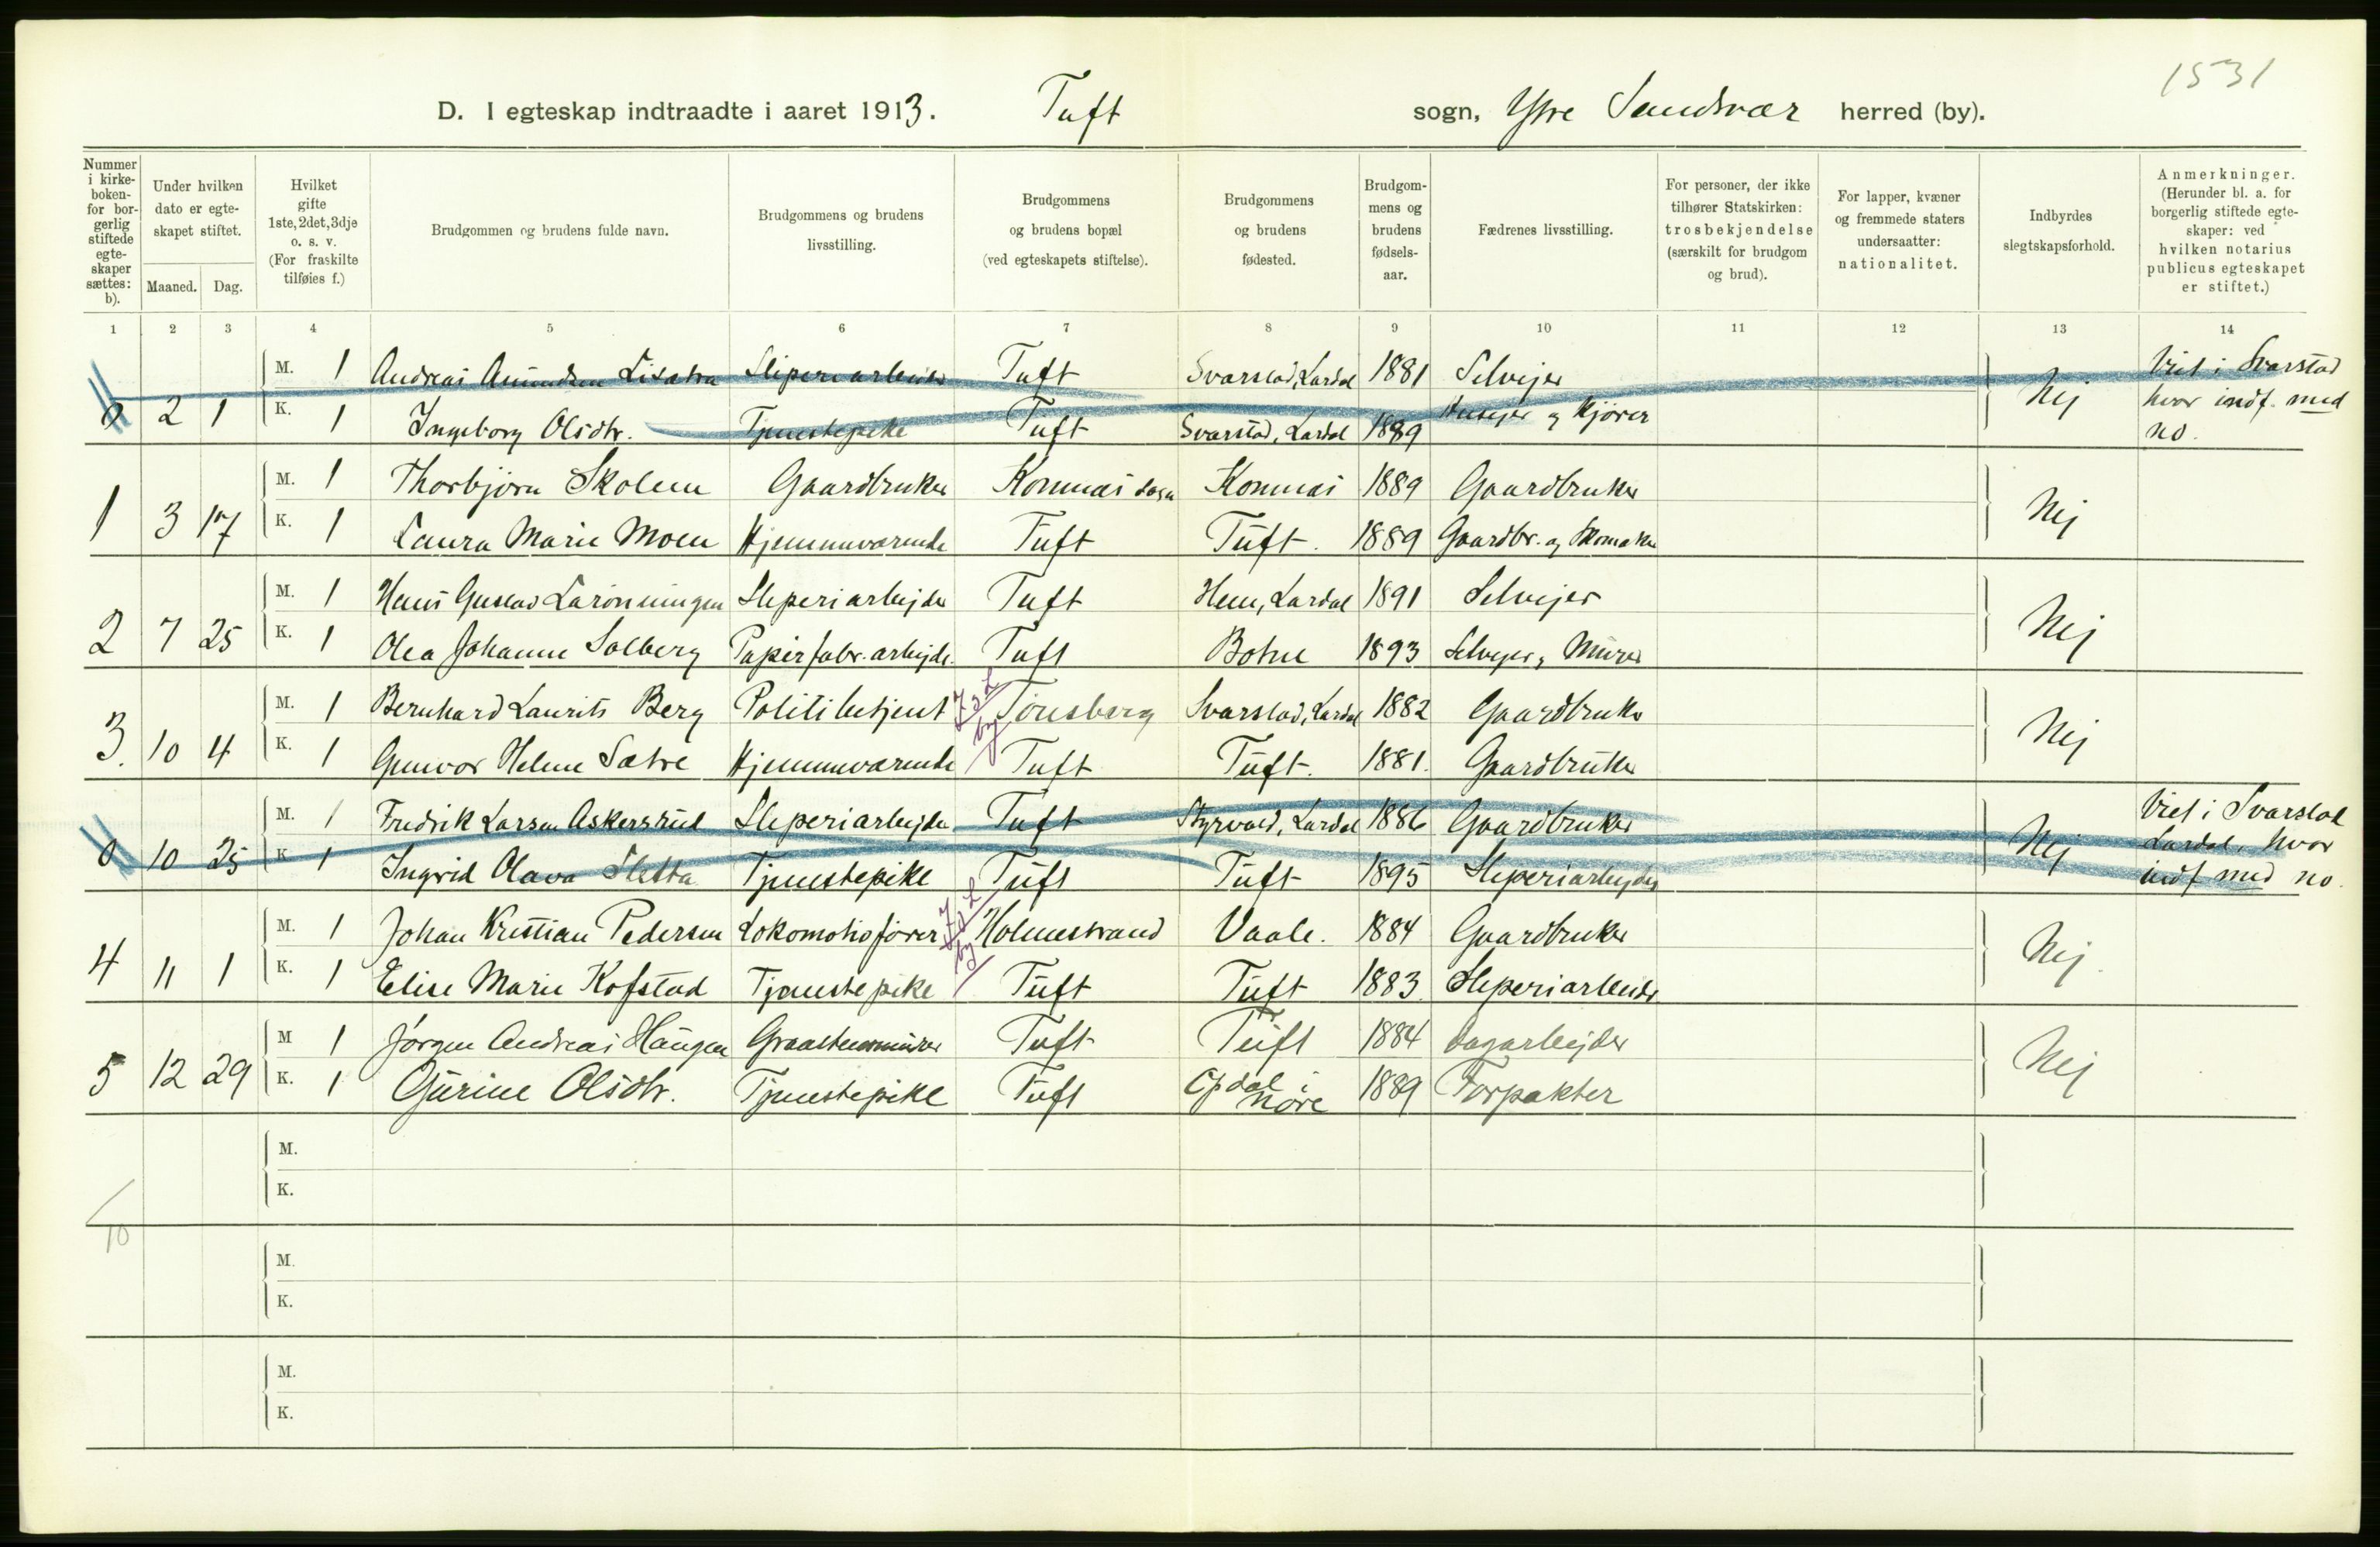 1531
D. I egteskap indtraadte i aaret 1913. Tuft sogn, Ytre Sandsvær herred (by).
Nummer i kirke-boken- for bor-gerlig stiftede egte-skaper sættes: b).
Under hvilken dato er egte-skapet stiftet.
Maaned. Dag.
Hvilket gifte 1ste, 2det, 3dje o. s. v. (For fraskilte tilføies f.)
Brudgommen og brudens fulde navn.
Brudgommens og brudens livsstilling.
Brudgommens og brudens bopæl (ved egteskapets stiftelse).
Brudgommens og brudens fødested.
Brudgom-mens og brudens fødsels-aar.
Fædrenes livsstilling.
For personer, der ikke tilhører Statskirken: trosbekjendelse (særskilt for brudgom og brud).
For lapper, kvæner og fremmede staters undersaatter: nationalitet.
Indbyrdes slegtskapsforhold.
Anmerkninger. (Herunder bl. a. for borgerlig stiftede egte-skaper: ved hvilken notarius publicus egteskapet er stiftet.)
1 2 3 4 5 6 7 8 9 10 11 12 13 14
M. 1 Andreas Amundsen Sliperiarbeider Tuft Svarstad, Lardal 1881 Selveier Viet i Svarstad
0 2 1 K. 1 Ingeborg Olsdtr. Tjenestepike Tuft Svarstad, Lardal 1889 Huseier og kjører Nej hvor indf. med
no.
M. 1 Thorbjørn Skolem Gaardbruker Komnæs sogn Komnæs 1889 Gaardbruker
1 3 17 K. 1 Laura Marie Moen Hjemmeværende Tuft Tuft. 1889 Gaardbr. og Skomaker Nej
M. 1 Hans Gustav Sliperiarbejder Tuft Hem, Lardal 1891 Selvejer
2 7 25 K. 1 Olea Johanne Solberg Papirfabr. arbejde. Tuft Botne 1893 Selvejer, Murer Nej
M. 1 Bernhard Laurits Berg Politibetjent Tønsberg Svarstad, Lardal 1882 Gaardbruker
by
3. 10 4 K. 1 Gunvor Helene Sætre Hjemmeværende Tuft Tuft. 1881. Gaardbruker Nej
M. 1 Fredrik Larsen Askersrud Sliperiarbejder Tuft Styrvold, Lardal 1886 Gaardbruker Viet i Svarstad
0 10 25 K. 1 Ingrid Olava Sletta Tjenestepike Tuft Tuft 1895 Sliperiarbejder Nej Lardal, hvor
indf med no.
M. 1 Johan Kristian Pedersen Lokomotivfører Holmestrand Vaale. 1884 Gaardbruker
by
4 11 1 K. 1 Elise Marie Kofstad Tjenestepike Tuft Tuft 1883. Sliperiarbeider Nej.
M 1 Jørgen Andreas Haugen Graastensmurer Tuft Tuft 1884 Dagarbejder
5 12 29 K. 1 Gurine Olsdtr. Tjenestepike Tuft Opdal i Nore 1889 Forpakter Nej
M.
K.
10
M.
K.
M.
K.